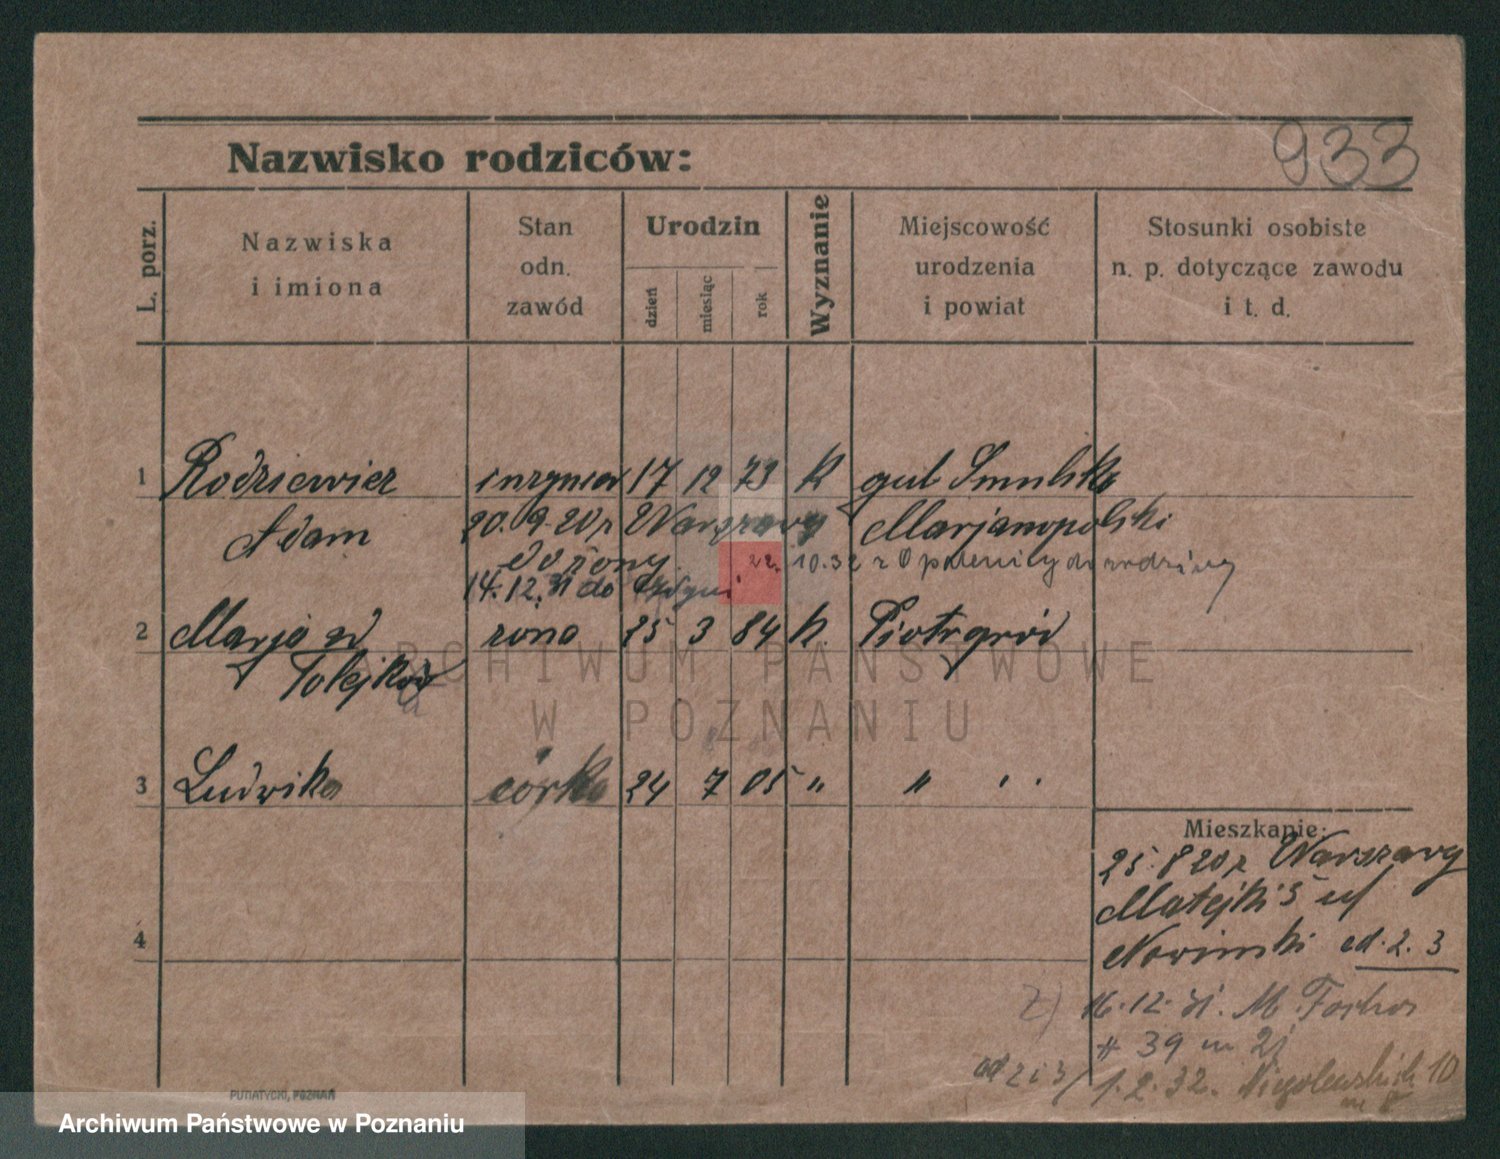 933
Nazwisko rodziców:
L. porz.
Nazwiska
i imiona
Stan
odn.
zawód
Urodzin
dzień
miesiąc
rok
Wyznanie
Miejscowość
urodzenia
i powiat
Stosunki osobiste
n. p. dotyczące zawodu
i t. d.
1 Rodziewicz inzynier 17 12 73 K gub Smulsk
Adam 20.9.20 r Warszawy Marjanopolski
do żony 22. 10.32 r Opalenicy do rodziny
14.12.31 do Gdyni
2 Marja zd zona 25 3 84 k. Piotrgród
Tolejko
3 Ludwika córka 24 7 05 " " " "
Mieszkanie:
25.8 20 r Warszawy
Matejki 5 u/
Nowinski ad. 2. 3
4
2) 16.12.31. M. Focha
# 39 m 2
ad 2 i 3/ 1.2.32. Niegolewskich 10
m 8
PUTIATYCKI, POZNAŃ
ARCHIWUM PAŃSTWOWE
W POZNANIU
Archiwum Państwowe w Poznaniu